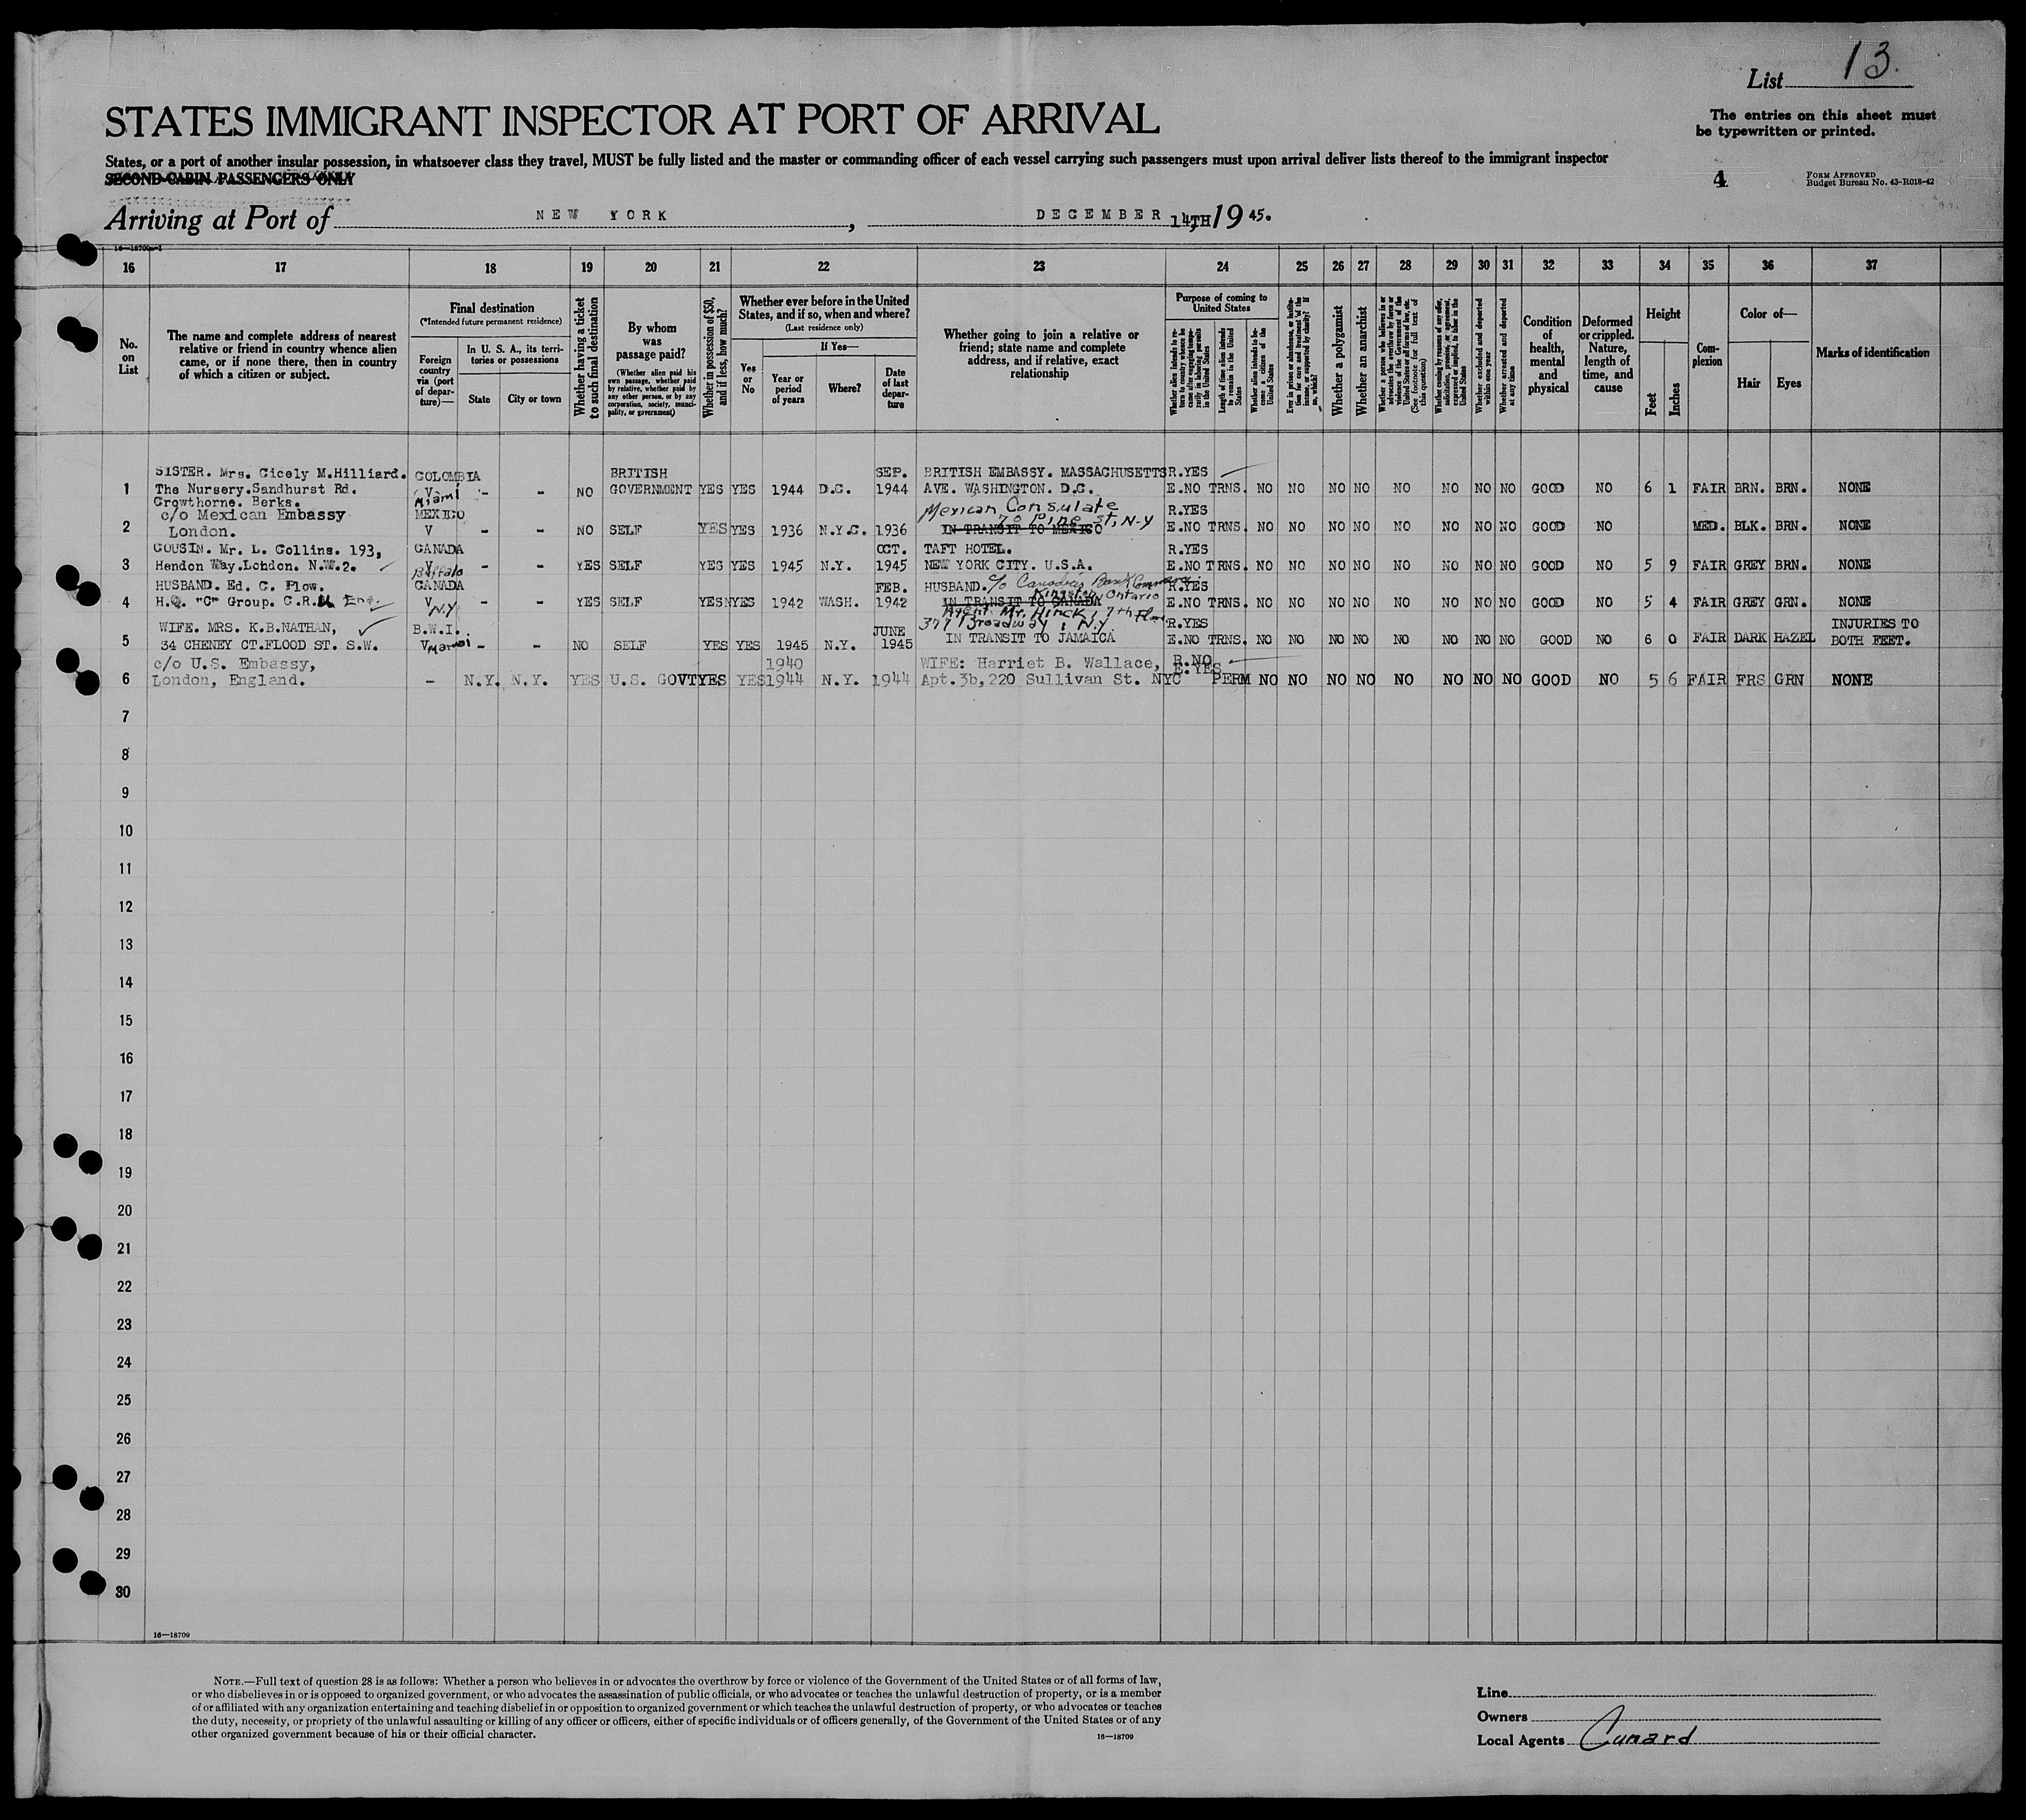 List 13.
STATES IMMIGRANT INSPECTOR AT PORT OF ARRIVAL
The entries on this sheet must
be typewritten or printed.
States, or a port of another insular possession, in whatsoever class they travel, MUST be fully listed and the master or commanding officer of each vessel carrying such passengers must upon arrival deliver lists thereof to the immigrant inspector
SECOND-CABIN PASSENGERS ONLY
4
FORM APPROVED
Budget Bureau No. 43-R018-42
Arriving at Port of NEW YORK, DECEMBER 14TH, 1945.
16 17 18 19 20 21 22 23 24 25 26 27 28 29 30 31 32 33 34 35 36 37
No. on List
The name and complete address of nearest relative or friend in country whence alien came, or if none there, then in country of which a citizen or subject.
Final destination
(*Intended future permanent residence)
Foreign country via (port of departure)—
In U. S. A., its territories or possessions
State
City or town
Whether having a ticket to such final destination
By whom was passage paid?
(Whether alien paid his own passage, whether paid by relative, whether paid by any other person, or by any corporation, society, municipality, or government)
Whether in possession of $50, and if less, how much?
Whether ever before in the United States, and if so, when and where?
(Last residence only)
If Yes—
Yes or No
Year or period of years
Where?
Date of last departure
Whether going to join a relative or friend; state name and complete address, and if relative, exact relationship
Purpose of coming to United States
Length of time alien intends to remain in the United States
Whether alien intends to become a citizen of the United States
Whether a polygamist
Whether an anarchist
Whether excluded and deported within one year
Whether arrested and deported at any time
Condition of health, mental and physical
Deformed or crippled. Nature, length of time, and cause
Height
Feet
Inches
Complexion
Color of—
Hair
Eyes
Marks of identification
SISTER. Mrs. Cicely M.Hilliard. COLOMBIA BRITISH SEP. BRITISH EMBASSY. MASSACHUSETTS R.YES
1 The Nursery.Sandhurst Rd. V Miami - - NO GOVERNMENT YES YES 1944 D.C. 1944 AVE. WASHINGTON. D.C. E.NO TRNS. NO NO NO NO NO NO NO NO GOOD NO 6 1 FAIR BRN. BRN. NONE
Crowthorne. Berks.
c/o Mexican Embassy MEXICO Mexican Consulate R.YES
70 Pine St, N.Y
2 London. V - - NO SELF YES YES 1936 N.Y.C. 1936 IN TRANSIT TO MEXICO E.NO TRNS. NO NO NO NO NO NO NO NO GOOD NO MED. BLK. BRN. NONE
COUSIN. Mr. L. Collins. 193, CANADA OCT. TAFT HOTEL. R.YES
3 Hendon Way.London. N.W.2. V Buffalo - - YES SELF YES YES 1945 N.Y. 1945 NEW YORK CITY. U.S.A. E.NO TRNS. NO NO NO NO NO NO NO NO GOOD NO 5 9 FAIR GREY BRN. NONE
HUSBAND. Ed. C. Plow. CANADA FEB. HUSBAND. c/o Canadian Bank Commerce R.YES
Kingston, Ontario
4 H.Q. "C" Group. C.R.U Eng. V N.Y - - YES SELF YES YES 1942 WASH. 1942 IN TRANSIT TO CANADA E.NO TRNS. NO NO NO NO NO NO NO NO GOOD NO 5 4 FAIR GREY GRN. NONE
Agent Mr. Hinck, 7th Floor
377 Broadway, N.Y
WIFE. MRS. K.B.NATHAN, B.W.I. JUNE R.YES INJURIES TO
5 34 CHENEY CT.FLOOD ST. S.W. V Miami - - NO SELF YES YES 1945 N.Y. 1945 IN TRANSIT TO JAMAICA E.NO TRNS. NO NO NO NO NO NO NO NO GOOD NO 6 0 FAIR DARK HAZEL BOTH FEET.
c/o U.S. Embassy, 1940 WIFE: Harriet B. Wallace, R.NO
E.YES
6 London, England. - N.Y. N.Y. YES U.S. GOVT YES YES 1944 N.Y. 1944 Apt.3b,220 Sullivan St. NYC PERM NO NO NO NO NO NO NO NO GOOD NO 5 6 FAIR FRS GRN NONE
7
8
9
10
11
12
13
14
15
16
17
18
19
20
21
22
23
24
25
26
27
28
29
30
16—18709
NOTE.—Full text of question 28 is as follows: Whether a person who believes in or advocates the overthrow by force or violence of the Government of the United States or of all forms of law,
or who disbelieves in or is opposed to organized government, or who advocates the assassination of public officials, or who advocates or teaches the unlawful destruction of property, or is a member
of or affiliated with any organization entertaining and teaching disbelief in or opposition to organized government or which teaches the unlawful destruction of property, or who advocates or teaches
the duty, necessity, or propriety of the unlawful assaulting or killing of any officer or officers, either of specific individuals or of officers generally, of the Government of the United States or of any
other organized government because of his or their official character.
16—18709
Line
Owners
Local Agents Cunard